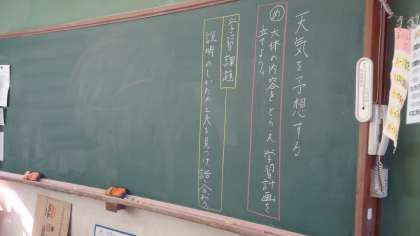 天気を予想する
め 大体の内容をとらえ 学習計画を
立てよう。
学習課題
説明のしかたの工夫を見つけ 話し合おう